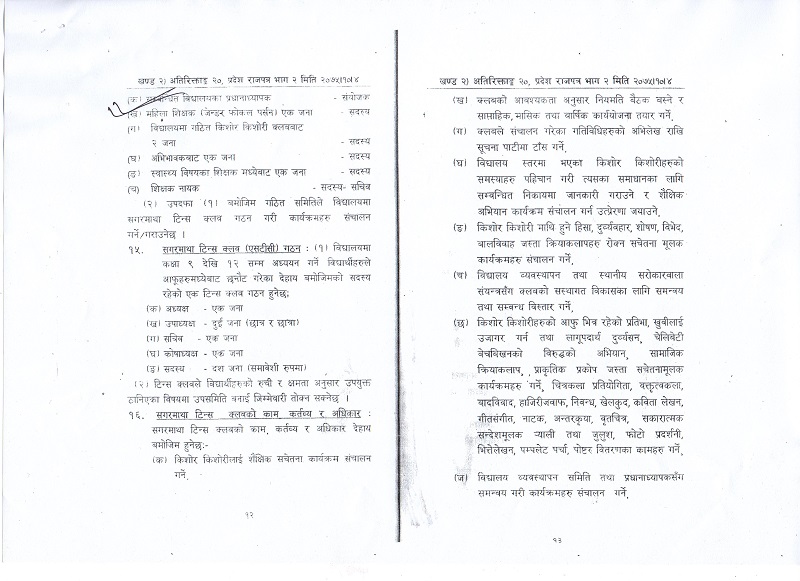 खण्ड २) अतिरिक्ताङ्क २०, प्रदेश राजपत्र भाग २ मिति २०७५।१०।४
(क) सम्बन्धित विद्यालयका प्रधानाध्यापक - संयोजक
(ख) महिला शिक्षक (जेन्डर फोकल पर्सन) एक जना - सदस्य
(ग) विद्यालयमा गठित किशोर किशोरी क्लवबाट
२ जना - सदस्य
(घ) अभिभावकबाट एक जना - सदस्य
(ङ) स्वास्थ्य विषयका शिक्षक मध्येबाट एक जना - सदस्य
(च) शिक्षक नायक - सदस्य- सचिव
(२) उपदफा (१) बमोजिम गठित समितिले विद्यालयमा
सगरमाथा टिन्स क्लव गठन गरी कार्यक्रमहरु संचालन
गर्ने/गराउनेछ ।
१५. सगरमाथा टिन्स क्लव (एसटीसी) गठन : (१) विद्यालयमा
कक्षा ९ देखि १२ सम्म अध्ययन गर्ने विद्यार्थीहरुले
आफूहरुमध्येबाट छनौट गरेका देहाय बमोजिमको सदस्य
रहेको एक टिन्स क्लव गठन हुनेछ:
(क) अध्यक्ष - एक जना
(ख) उपाध्यक्ष - दुई जना (छात्र र छात्रा)
(ग) सचिव - एक जना
(घ) कोषाध्यक्ष - एक जना
(ङ) सदस्य - दश जना (समावेशी रुपमा)
(२) टिन्स क्लवले विद्यार्थीहरुको रुची र क्षमता अनुसार उपयुक्त
ठानिएका विषयमा उपसमिति बनाई जिम्मेवारी तोक्न सक्नेछ ।
१६. सगरमाथा टिन्स क्लवको काम, कर्तव्य र अधिकार :
सगरमाथा टिन्स क्लवको काम, कर्तव्य र अधिकार देहाय
बमोजिम हुनेछ:-
(क) किशोर किशोरीलाई शैक्षिक सचेतना कार्यक्रम संचालन
गर्ने,
१२
खण्ड २) अतिरिक्ताङ्क २०, प्रदेश राजपत्र भाग २ मिति २०७५।१०।४
(ख) क्लवको आवश्यकता अनुसार नियमति बैठक बस्ने र
साप्ताहिक, मासिक तथा वार्षिक कार्ययोजना तयार गर्ने,
(ग) क्लवले संचालन गरेका गतिविधिहरुको अभिलेख राखि
सूचना पाटीमा टाँस गर्ने,
(घ) विद्यालय स्तरमा भएका किशोर किशोरीहरुको
समस्याहरु पहिचान गरी त्यसका समाधानका लागि
सम्बन्धित निकायमा जानकारी गराउने र शैक्षिक
अभियान कार्यक्रम संचालन गर्न उत्प्रेरणा जगाउने,
(ङ) किशोर किशोरी माथि हुने हिंसा, दुर्व्यवहार, शोषण, विभेद,
बालविवाह जस्ता क्रियाकलापहरु रोक्न सचेतना मूलक
कार्यक्रमहरु संचालन गर्ने,
(च) विद्यालय व्यवस्थापन तथा स्थानीय सरोकारवाला
संयन्त्रसँग क्लवको सस्थागत विकासका लागि समन्वय
तथा सम्वन्ध विस्तार गर्ने,
(छ) किशोर किशोरीहरुको आफु भित्र रहेको प्रतिभा, खुबीलाई
उजागर गर्न तथा लागूपदार्थ दुर्व्यसन, चेलिबेटी
बेचबिखनको बिरुद्धको अभियान, सामाजिक
क्रियाकलाप, प्राकृतिक प्रकोप जस्ता सचेतनामूलक
कार्यक्रमहरु गर्ने, चित्रकला प्रतियोगिता, वक्तृत्वकला,
वादविवाद, हाजिरीजवाफ, निबन्ध, खेलकुद, कविता लेखन,
गीतसंगीत, नाटक, अन्तरकृया, वृतचित्र, सकारात्मक
सन्देशमूलक ऱ्याली तथा जुलुश, फोटो प्रदर्शनी,
भित्तेलेखन, पम्पलेट पर्चा, पोष्टर वितरणका कामहरु गर्ने,
(ज) विद्यालय व्यवस्थापन समिति तथा प्रधानाध्यापकसँग
समन्वय गरी कार्यक्रमहरु संचालन गर्ने,
१३